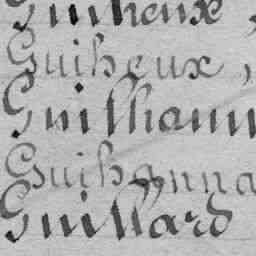 Guiheux,
Guiheux,
Guilhann
Guihanna
Guillard